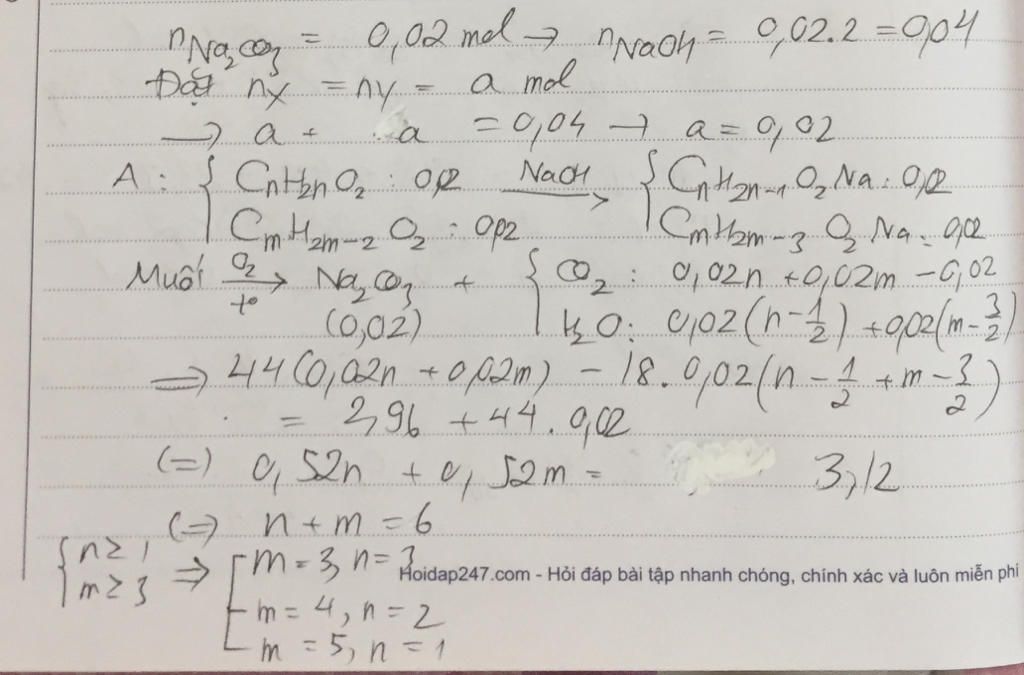 nNa₂CO₃ = 0,02 mol → nNaOH = 0,02.2 = 0,04
Đặt nX = nY = a mol
→ a + a = 0,04 → a = 0,02
A : { CnH2nO2 : 0,02 NaOH → { CnH2n-1O2Na : 0,02
CmH2m-2O2 : 0,02 CmH2m-3O2Na : 0,02
Muối O2 t° → Na2CO3 + { CO2 : 0,02n + 0,02m - 0,02
(0,02) H2O : 0,02(n - 1/2) + 0,02(m - 3/2)
⇒ 44(0,02n + 0,02m) - 18.0,02(n - 1/2 + m - 3/2)
= 2,96 + 44.0,02
(=) 0,52n + 0,52m = 3,12
(=) n + m = 6
{ n ≥ 1
m ≥ 3 ⇒ [ m = 3, n = 3
m = 4, n = 2
m = 5, n = 1
Hoidap247.com - Hỏi đáp bài tập nhanh chóng, chính xác và luôn miễn phí